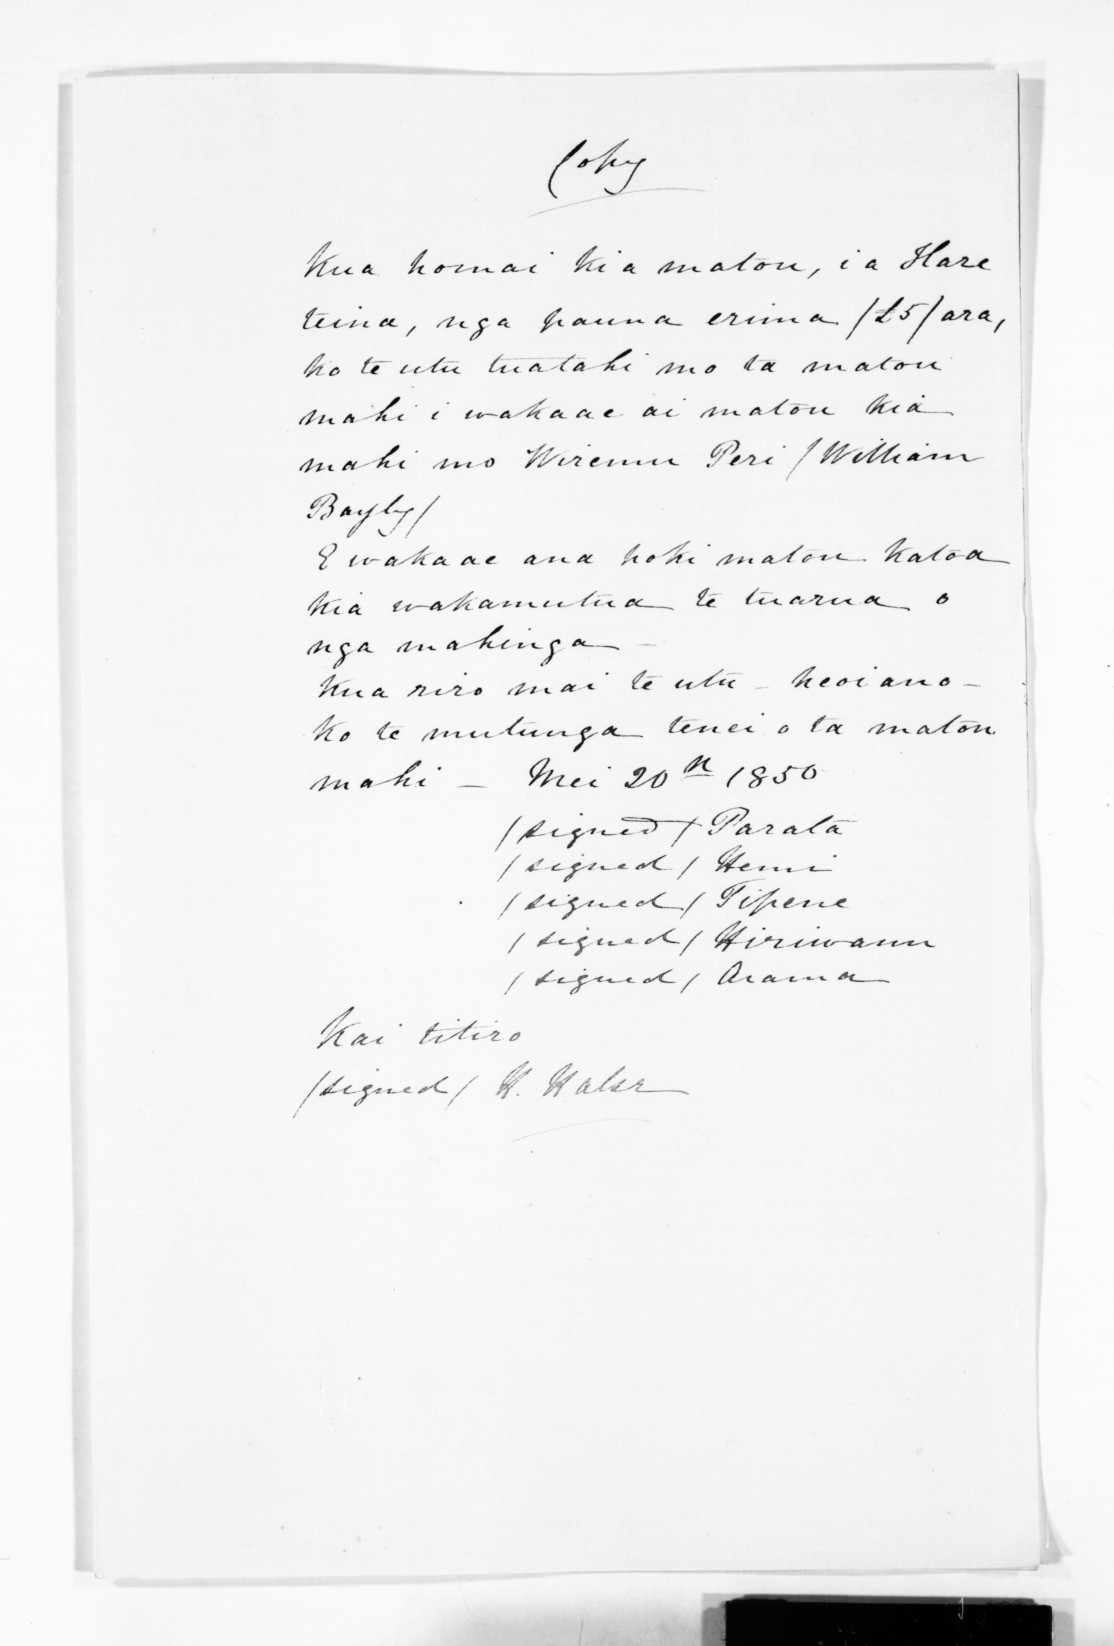 Copy
Kua homai kia matou, i a Hare
teina, nga pauna erima /£5/ ara,
ko te utu tuatahi mo ta matou
mahi i wakaae ai matou kia
mahi mo Wiremu Peri /William
Bayly/
E wakaae ana hoki matou katoa
kia wakamutua te tuarua o
nga mahinga -
Kua riro mai te utu - heoiano -
ko te mutunga tenei o ta matou
mahi - Mei 20th 1850
/signed/ Parata
/signed/ Hemi
/signed/ Tipene
/signed/ Hiriwanu
/signed/ Arama
Kai titiro
/signed/ H. Halse